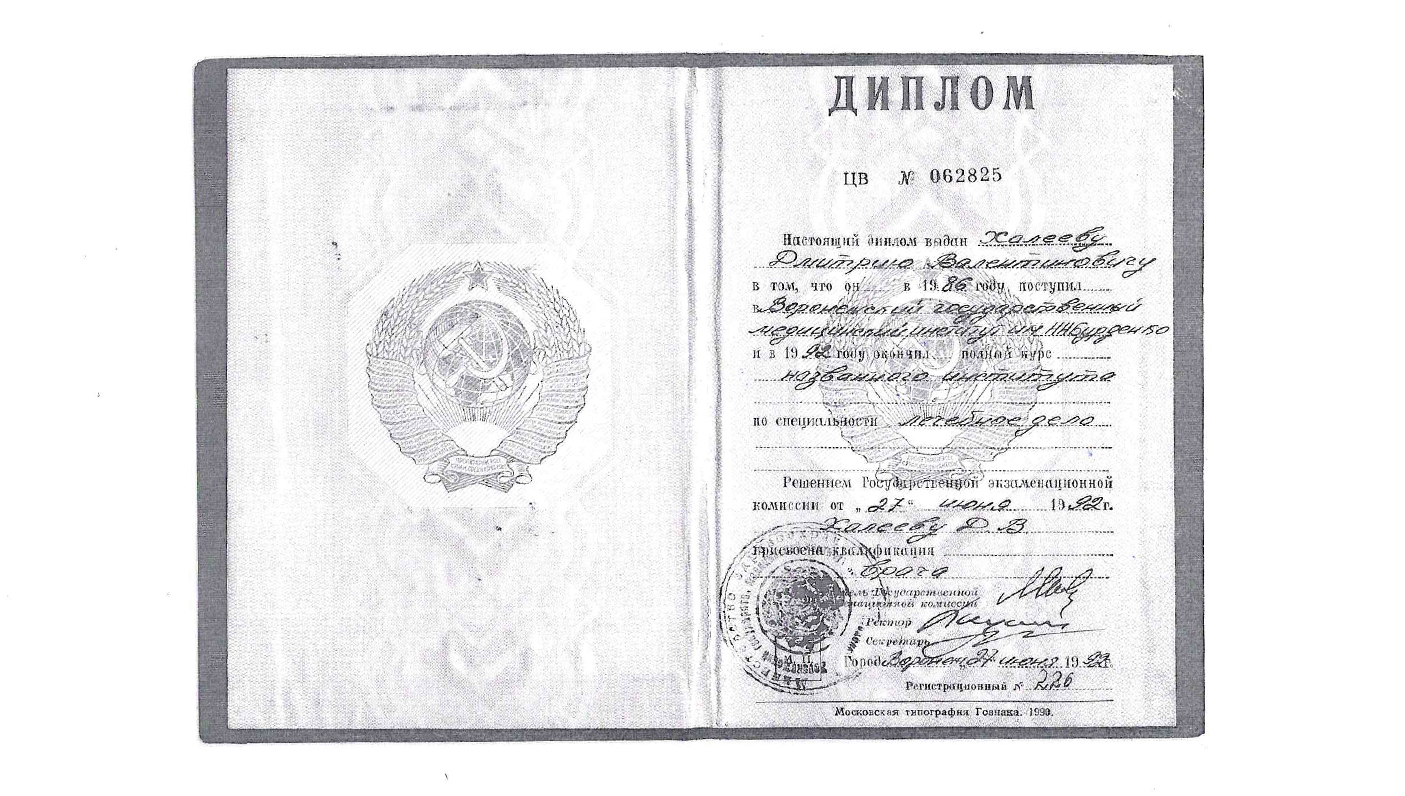 ДИПЛОМ
ЦВ № 062825
Настоящий диплом выдан Халееву
Дмитрию Валентиновичу
в том, что он в 1986 году поступил
в Воронежский государственный
медицинский институт им. Н.Н.Бурденко
и в 1992 году окончил полный курс
названного института
по специальности лечебное дело
Решением Государственной экзаменационной
комиссии от „27“ июня 1992г.
Халееву Д. В.
присвоена квалификация
врача
Государственной
комиссии
Ректор
Секретарь
М. П.
Город Воронеж 27 июня 1992г.
Регистрационный № 226
Московская типография Гознака. 1990.